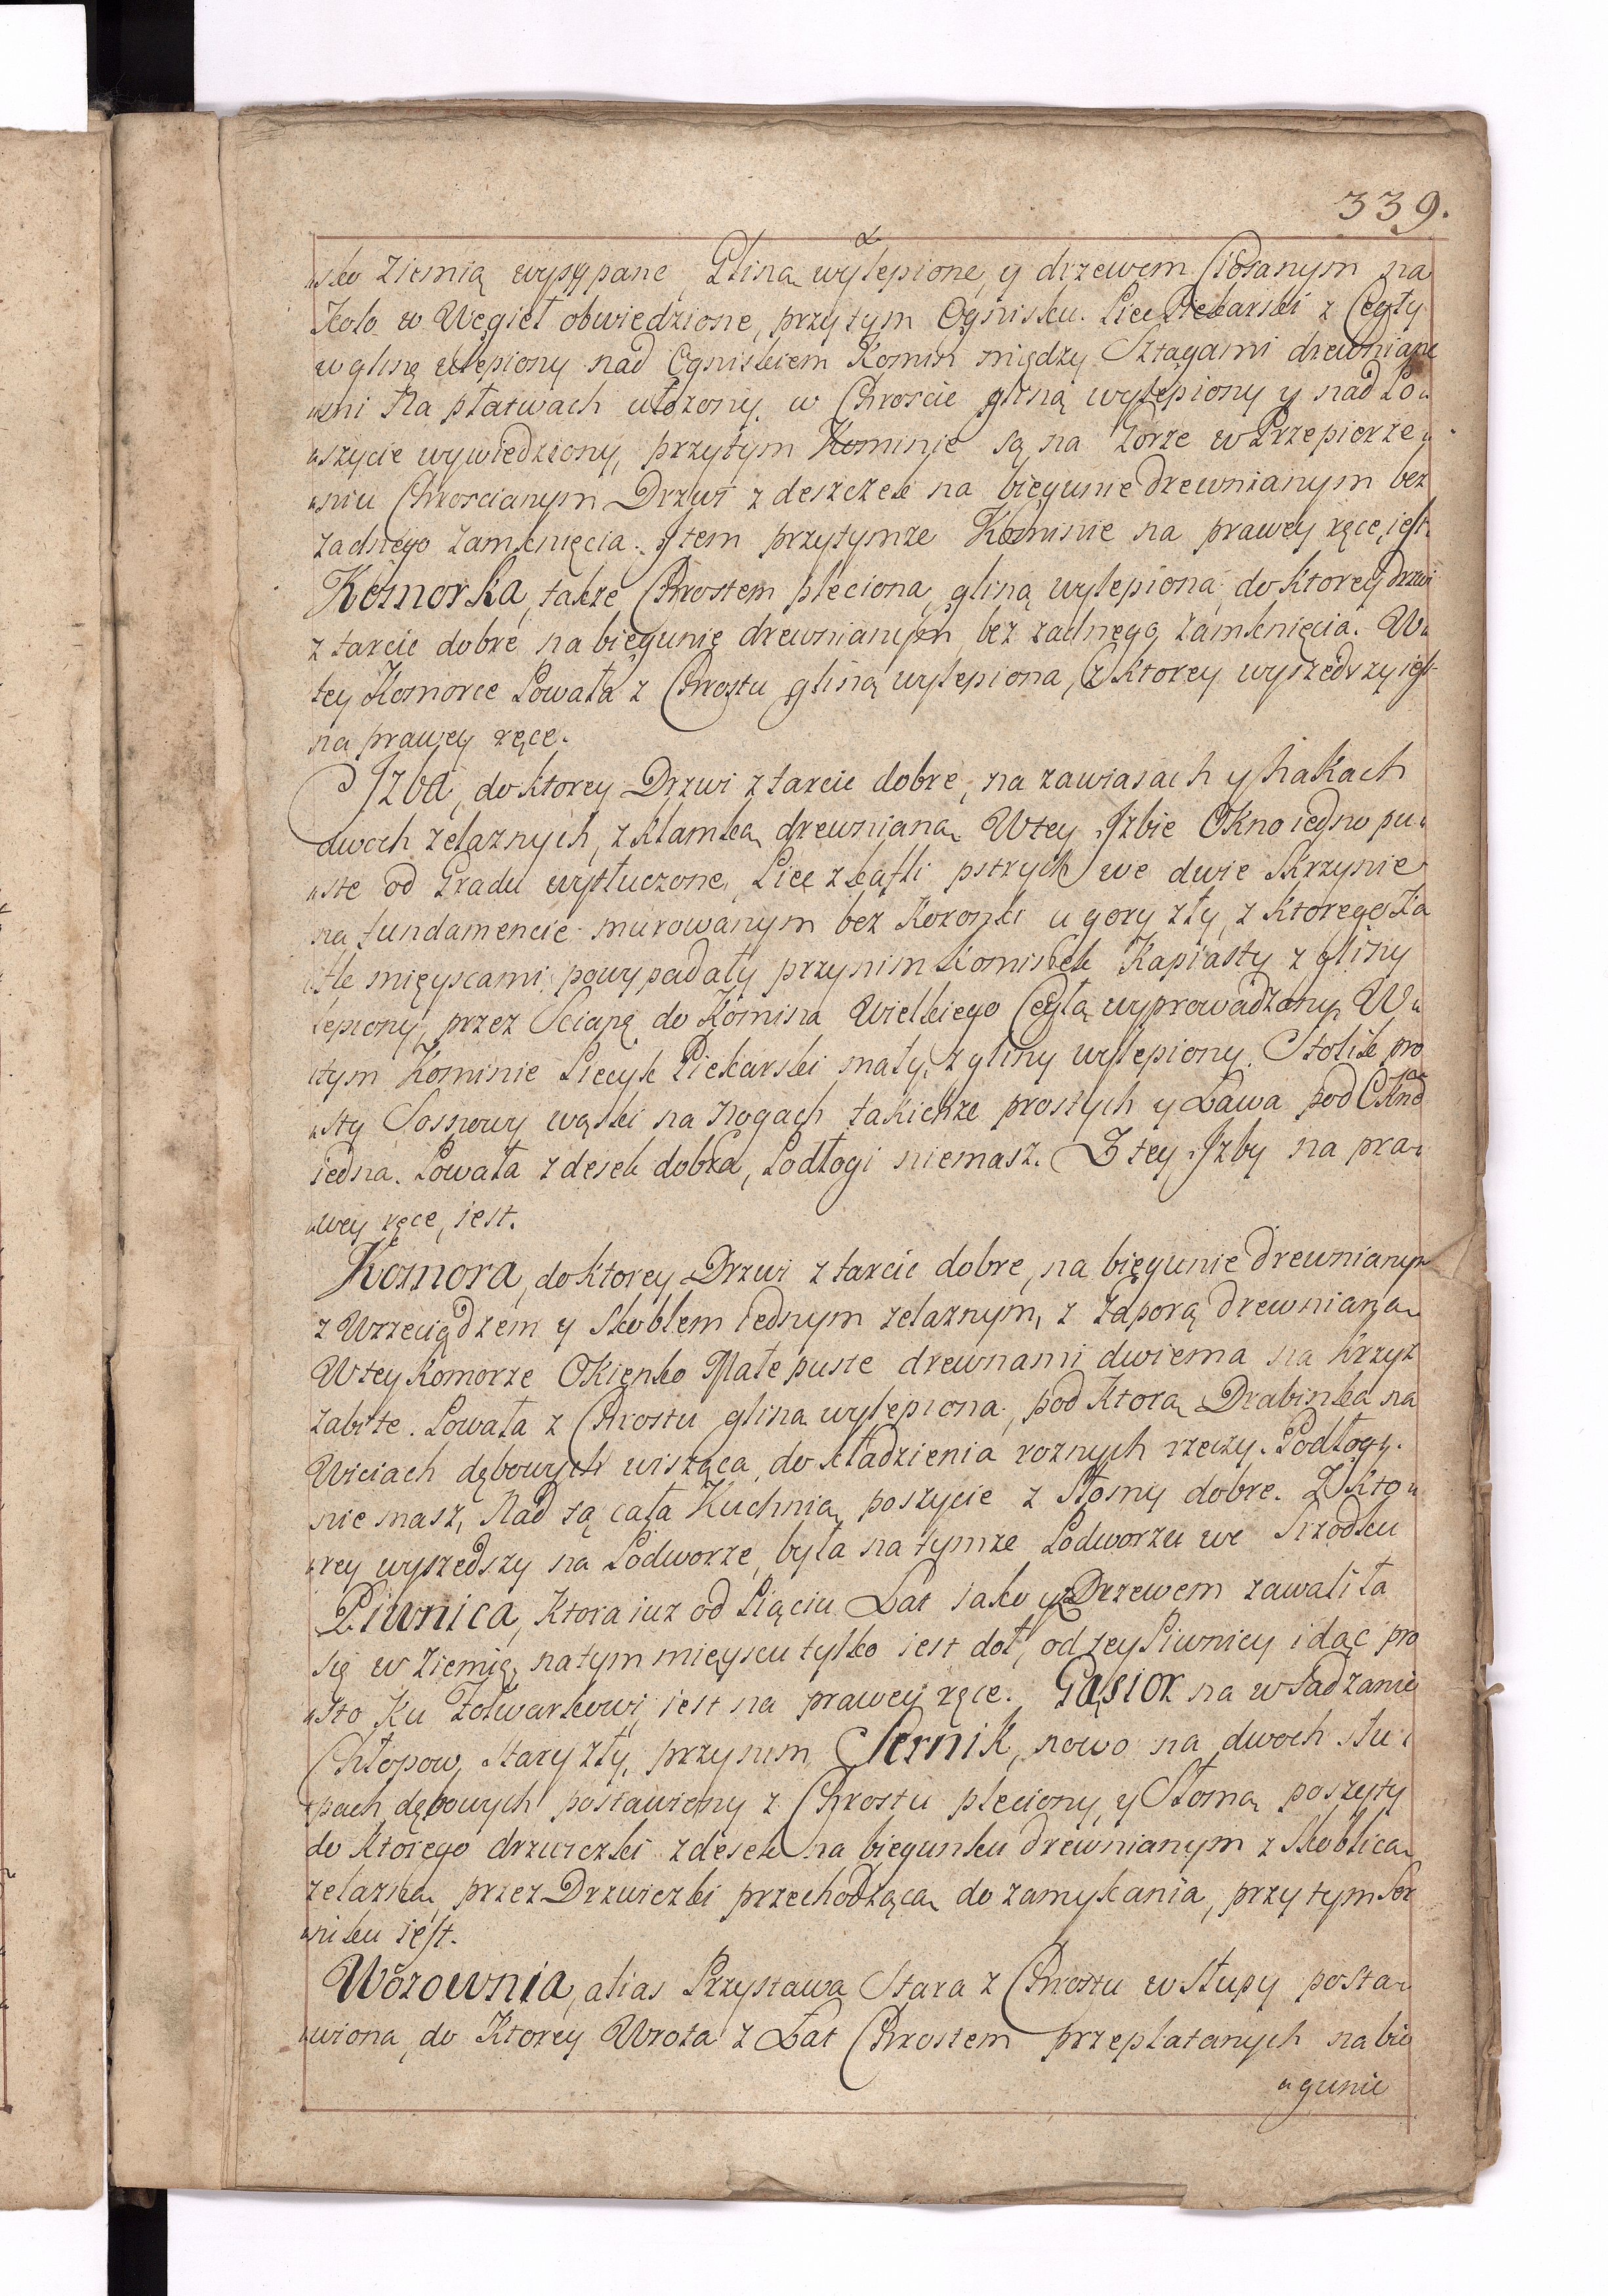 339.
„sko Ziemią wysypane, Gliną wylepione, y drzewem Ciosanym na
Koło w Węgieł obwiedzione, przytym Ognisku. Piec Piekarski z Cegły
w glinę ulepiony nad Ogniskiem Komin między Sztagami drewniane
„mi Na płatwach ułożony, w Chroście gliną wylepiony y nad Po„
„szycie wywiedziony, przytym Kominie są na Gorze w Przepierze„
„niu Chrościanym Drzwi z deszczek na biegunie drewnianym bez
żadnego zamknięcia. Item przytymże Kominie na prawey ręce, iest
Komorka, także Chrostem pleciona, gliną wylepiona, do ktorey drzwi
z tarcic dobre, na biegunie drewnianym, bez żadnego zamknięcia. W„
tey Komorce Powała z Chrostu gliną wylepiona, z ktorey wyszedszy iest
na prawey ręce.
Izba, do ktorey Drzwi z tarcic dobre, na zawiasach y hakach
dwoch żelaznych, z klamką drewnianą. W tey Izbie Okno iedno pu„
„ste od Gradu wytłuczone, Piec z kafli pstrych we dwie Skrzynie
na fundamencie murowanym bez Koronki u gory zły, z ktorego Ka
„fle mieyscami powypadały przynim Kominek Kapiasty z gliny
lepiony, przez Scianę do Komina Wielkiego Cegłą wyprowadzony. W„
„tym Kominie Piecyk Piekarski mały, z gliny wylepiony. Stolik pro
„sty Sosnowy wąski na nogach takichże prostych y Ława pod Oknẽ
iedna. Powała z desek dobra, Podłogi niemasz. Z tey Izby na pra„
„wey ręce, iest.
Komora, do ktorey Drzwi z tarcic dobre, na biegunie drewnianym
z Wrzeciądzem y Skoblem iednym żelaznym, z zaporą drewnianą
W tey Komorze Okienko Małe puste drewnami dwiema na krzyż
zabite. Powała z Chrostu gliną wylepiona, pod ktorą Drabinka na
Wiciach dębowych wisząca, do kładzienia rożnych rzeczy. Podłogy
nie masz, Nad tą całą Kuchnią poszycie z Słomy dobre. Z Kto„
„rey wyszedszy na Podworze, była na tymże Podworzu we Srzodku
Piwnica, ktora iuż od Piąciu Lat iako y z Drzewem zawaliła
się w Ziemię, na tym mieyscu tylko iest doł, od tey Piwnicy idąc pro
„sto ku Folwarkowi iest na prawey ręce. Gąsior na wsadzanie
Chłopow, stary zły, przynim Sernik, nowo na dwoch słu„
„pach dębowych postawiony z Chrostu pleciony, y Słomą poszyty
do ktorego drzwiczki z desek na biegunku drewnianym z Skoblicą
żelazną, przez Drzwiczki przechodzącą do zamykania, przy tym Ser
„niku iest.
Wozownia, alias Przystawa Stara z Chrostu w Słupy posta„
„wiona, do Ktorey Wrota z Łat Chrostem przeplatanych na bie
„gunie